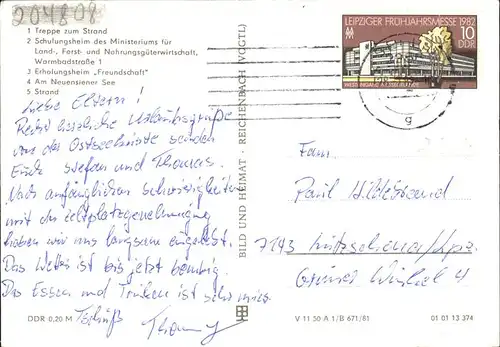 204808
1 Treppe zum Strand
2 Schulungsheim des Ministeriums für
Land-, Forst- und Nahrungsgüterwirtschaft,
Warmbadstraße 1
3 Erholungsheim „Freundschaft"
4 Am Neuensiener See
5 Strand
Liebe Eltern!
Recht herzliche Urlaubsgrüße
von der Ostseeküste senden
Euch Stefan und Thomas.
Nach anfänglichen Schwierigkeiten
mit der Zeltplatzgenehmigung
haben wir uns langsam eingelebt.
Das Wetter ist bis jetzt
Das Essen und Trinken ist sehr
Tschüß Thomas
DDR 0,20 M
BILD UND HEIMAT · REICHENBACH (VOGTL)
LEIPZIGER FRÜHJAHRSMESSE 1982
10
DDR
g
Fam.
Paul Hildebrand
7143 Lützschena/Lpz.
Grüner Winkel 4
V 11 50 A 1/B 671/81
01 01 13 374